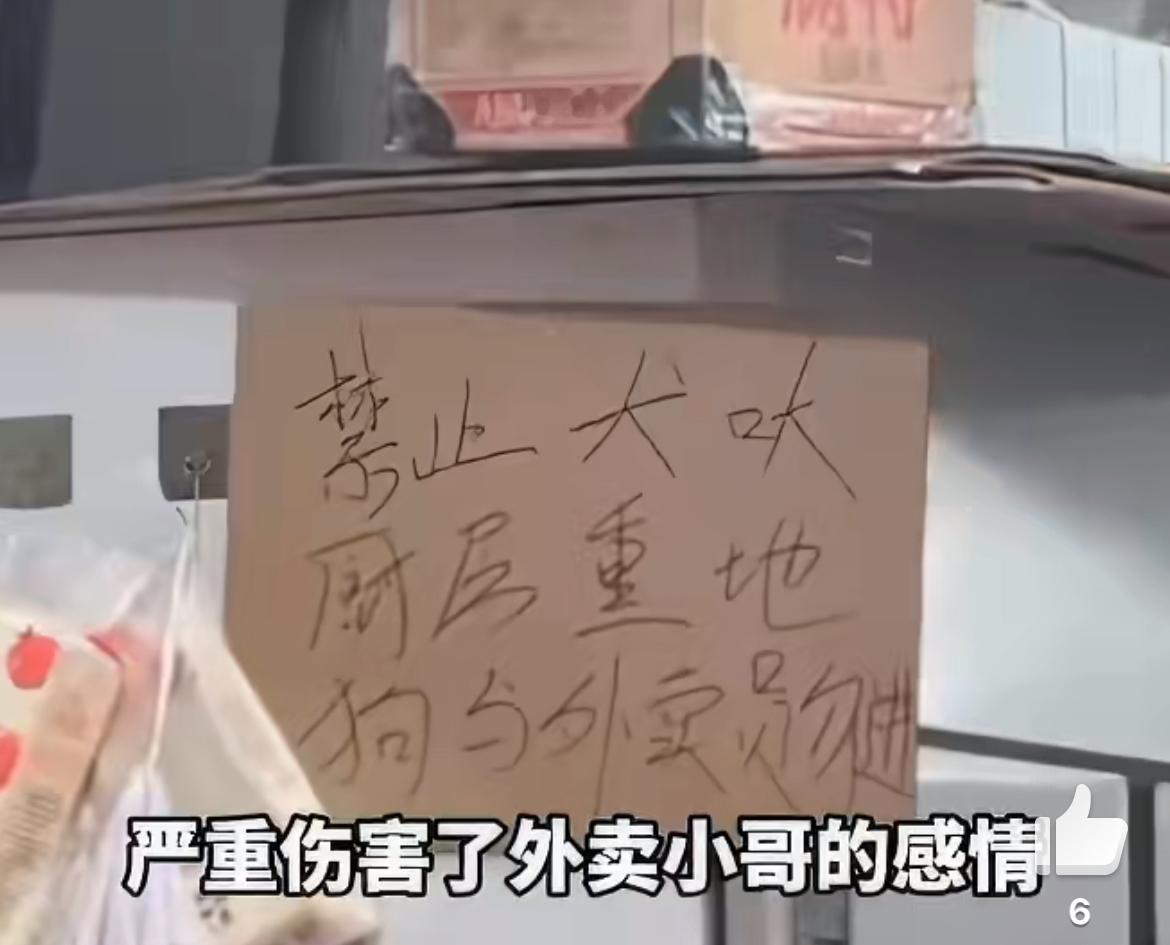 禁止犬吠
厨房重地
狗与外卖员勿进
严重伤害了外卖小哥的感情
6